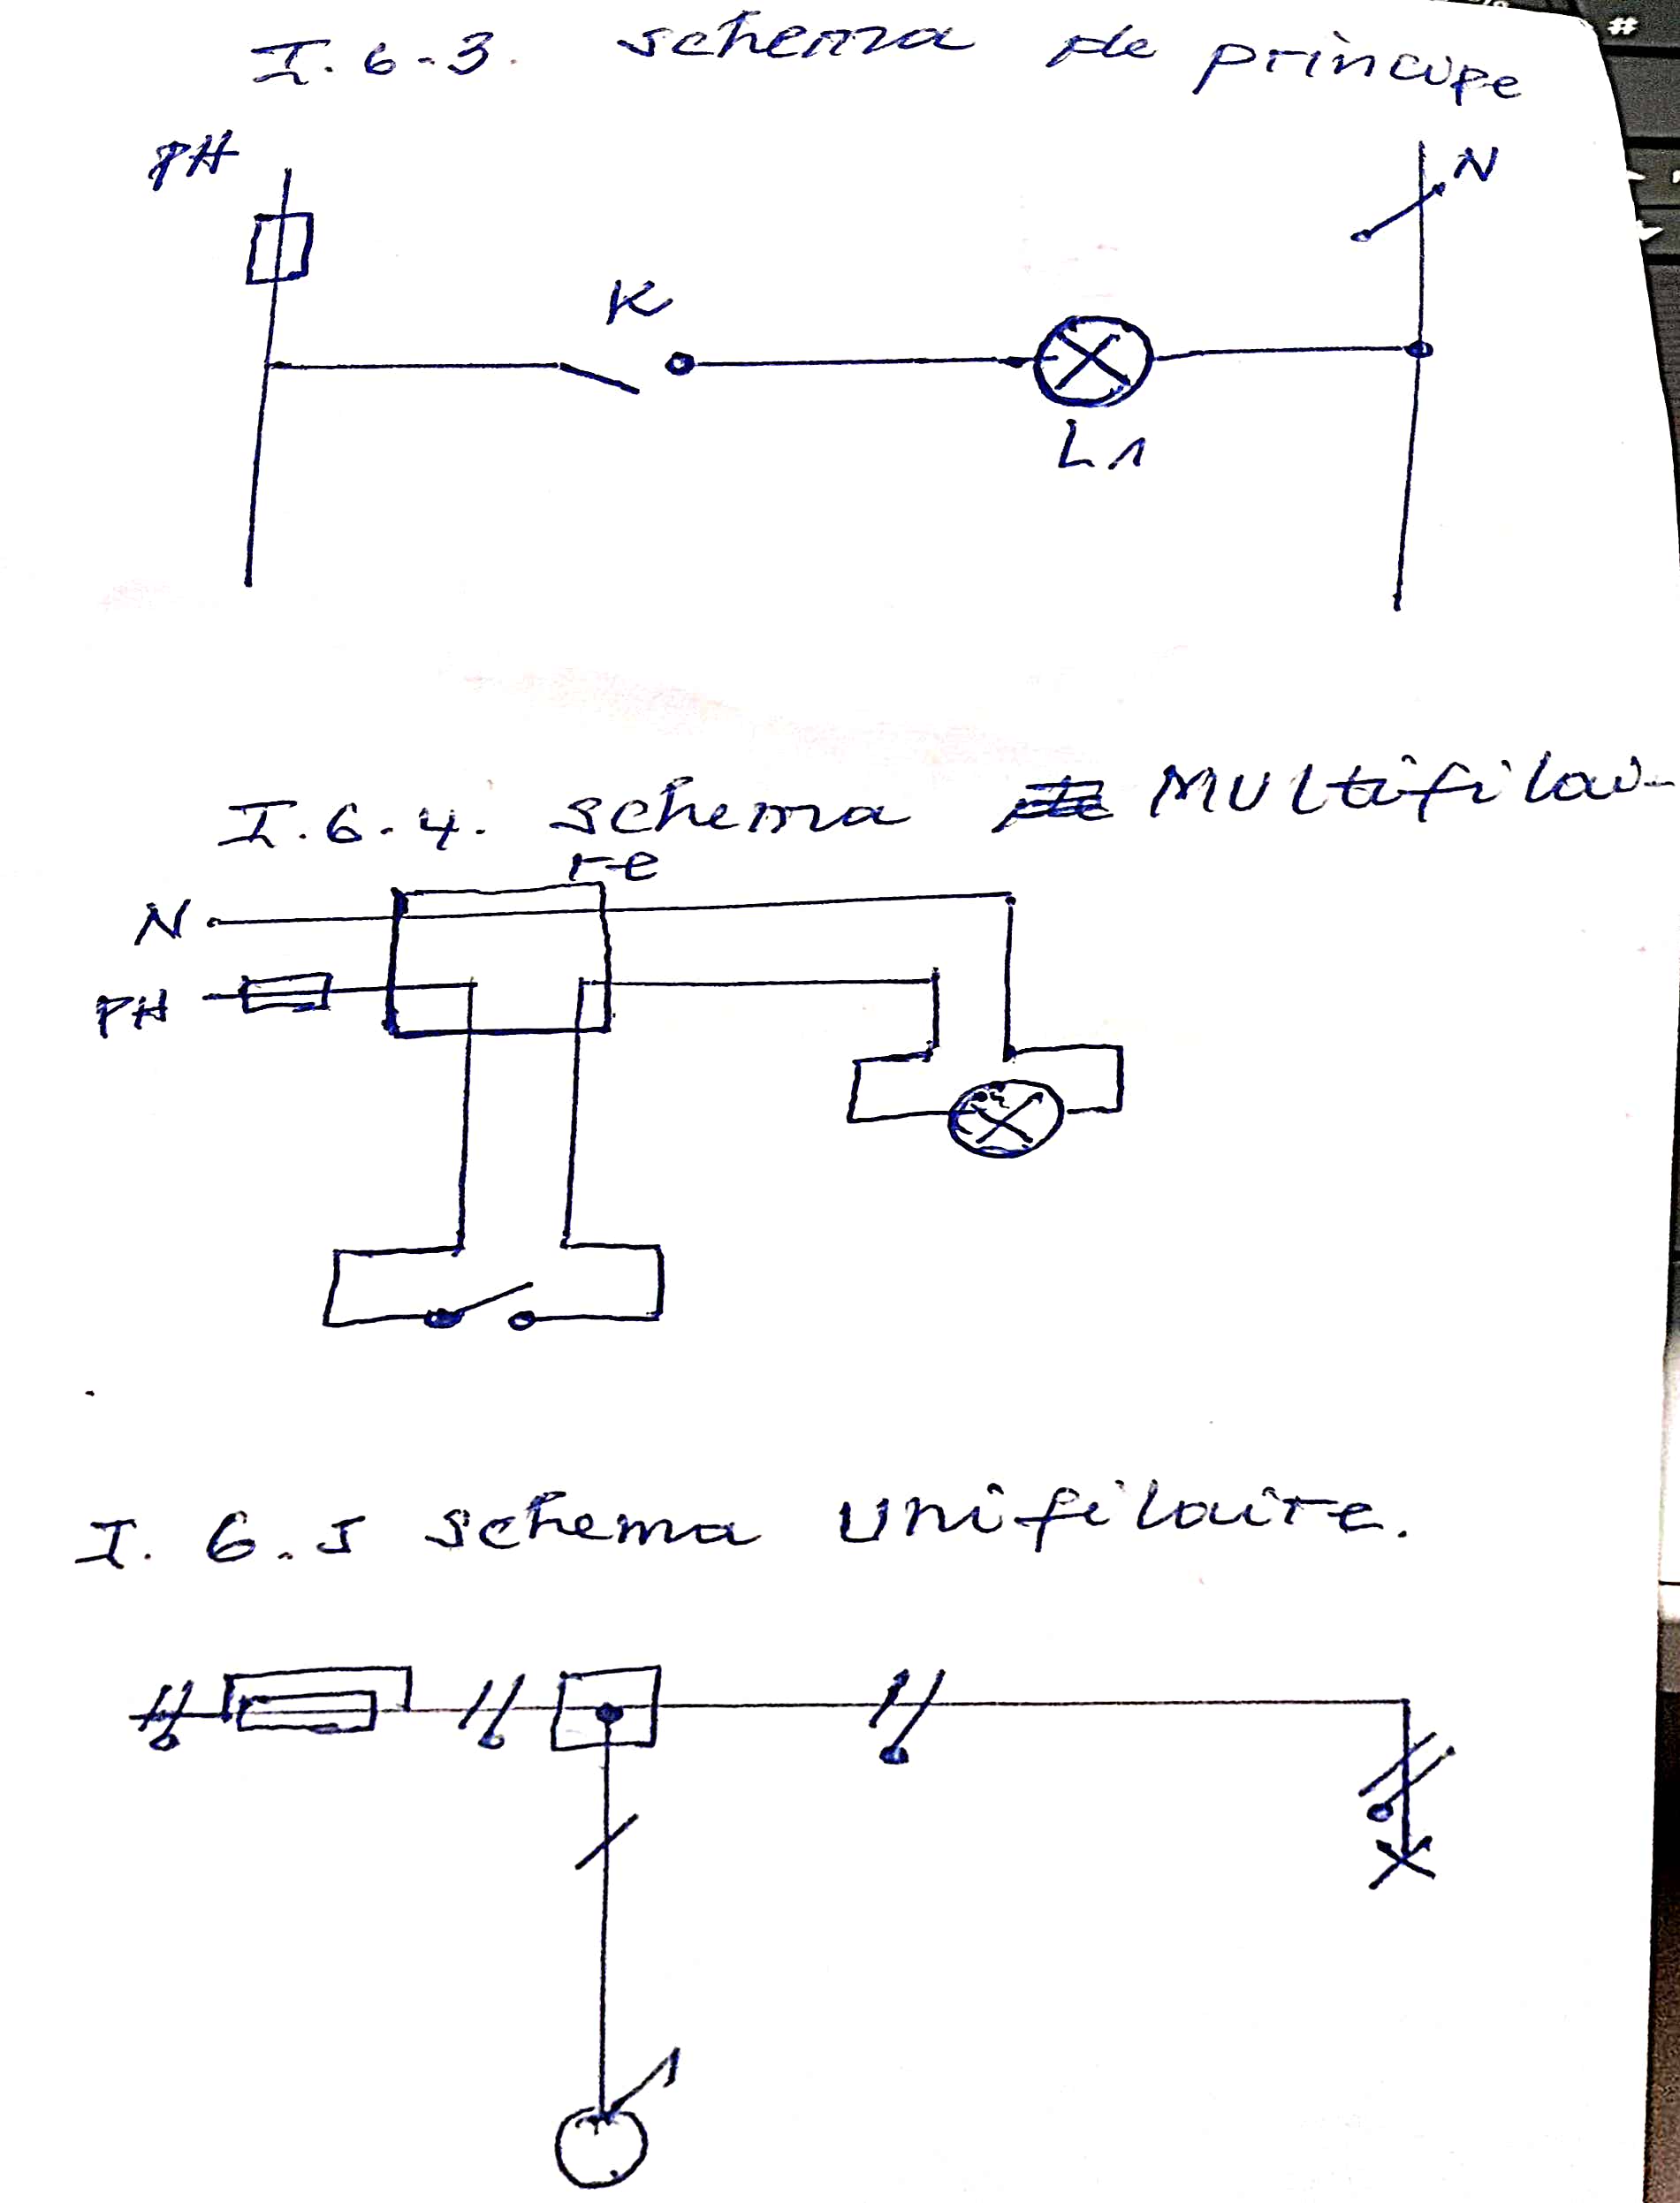 I.6-3. schema de principe
PH
N
K
L1
I.6-4. schema MULtifilai-
re
N
PH
I. 6.5 schema unifilaire.